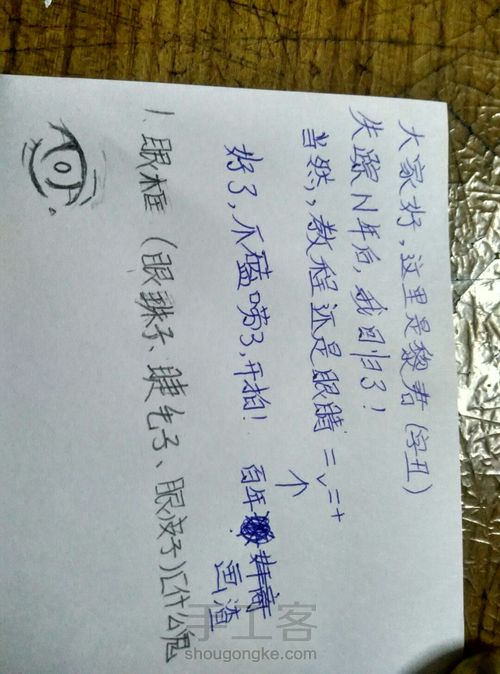 大家好,这里是黎君(字丑)
失踪N年后,我回归了!
当然,教程还是眼睛=ᵥ=+
个
好了,不磕唠了,开拍!
百年
画渣
1.眼框(眼珠子、睫毛子、眼皮子)汇什么鬼
手工客
shougongke.com